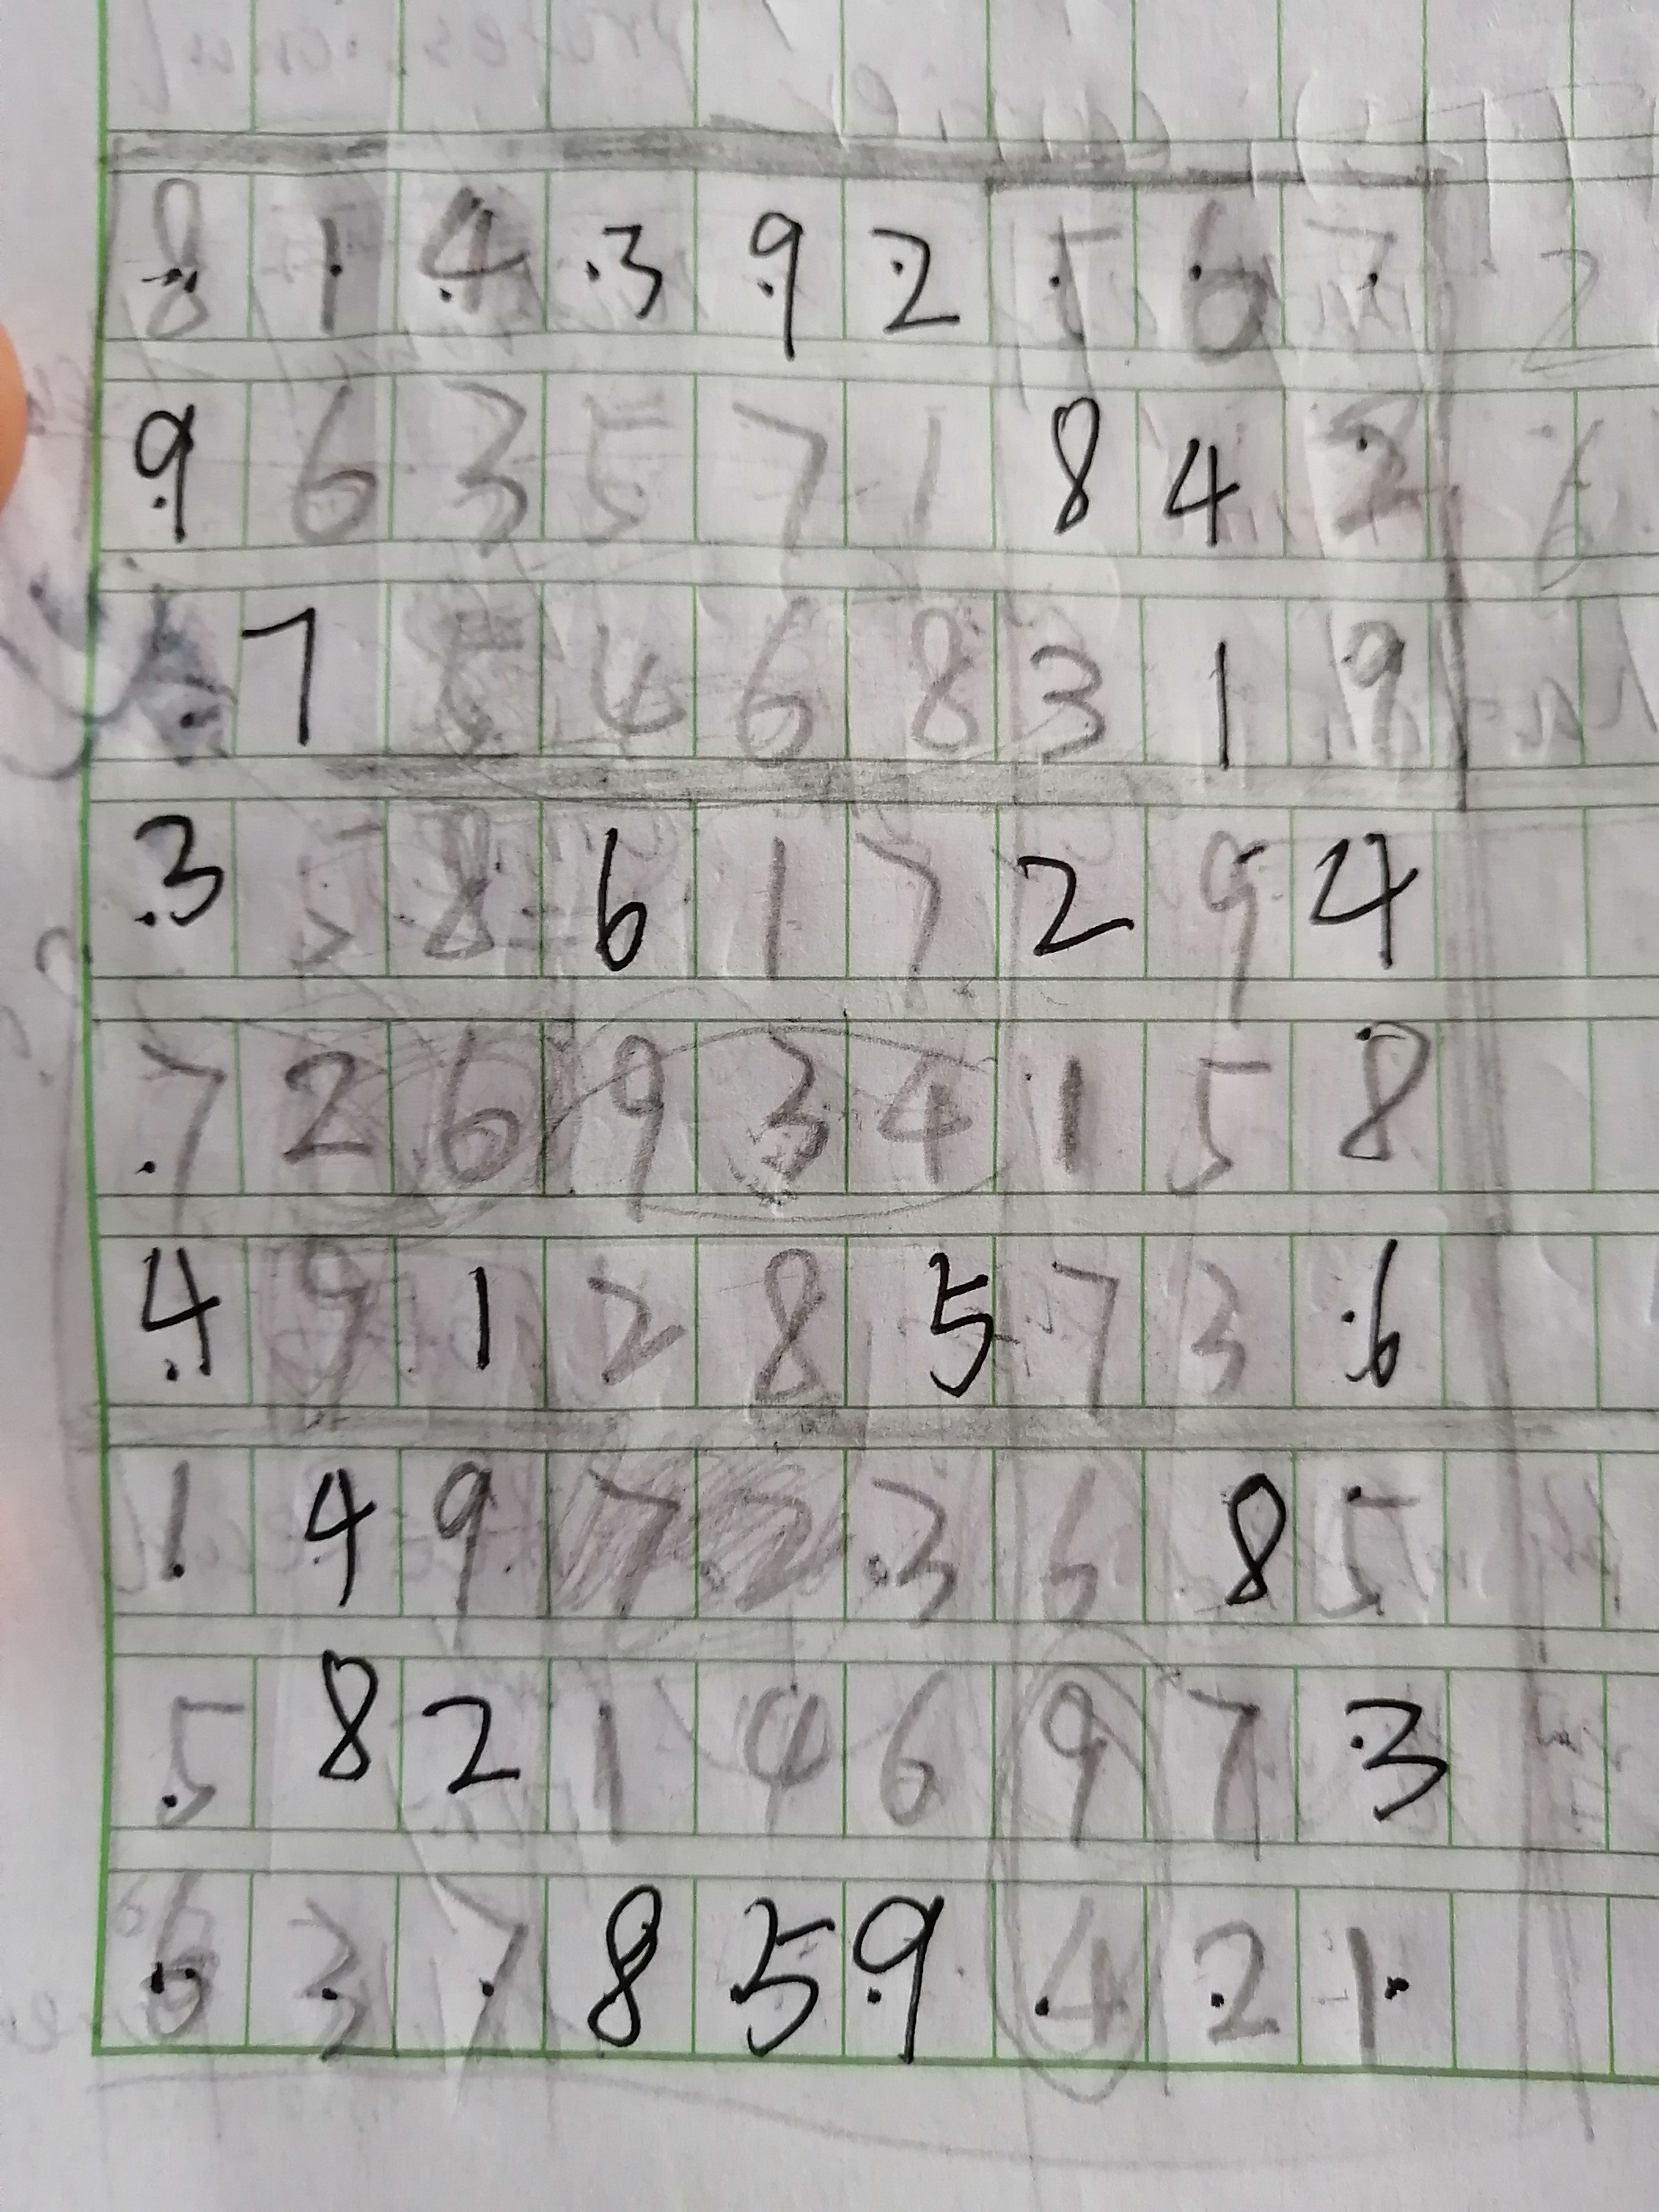 8 1 4 3 9 2 5 6 7
9 6 3 5 7 1 8 4 2
7 5 4 6 8 3 1 9
3 5 8 6 1 7 2 9 4
7 2 6 9 3 4 1 5 8
4 9 1 2 8 5 7 3 6
1 4 9 7 2 3 6 8 5
5 8 2 1 4 6 9 7 3
6 3 7 8 5 9 4 2 1